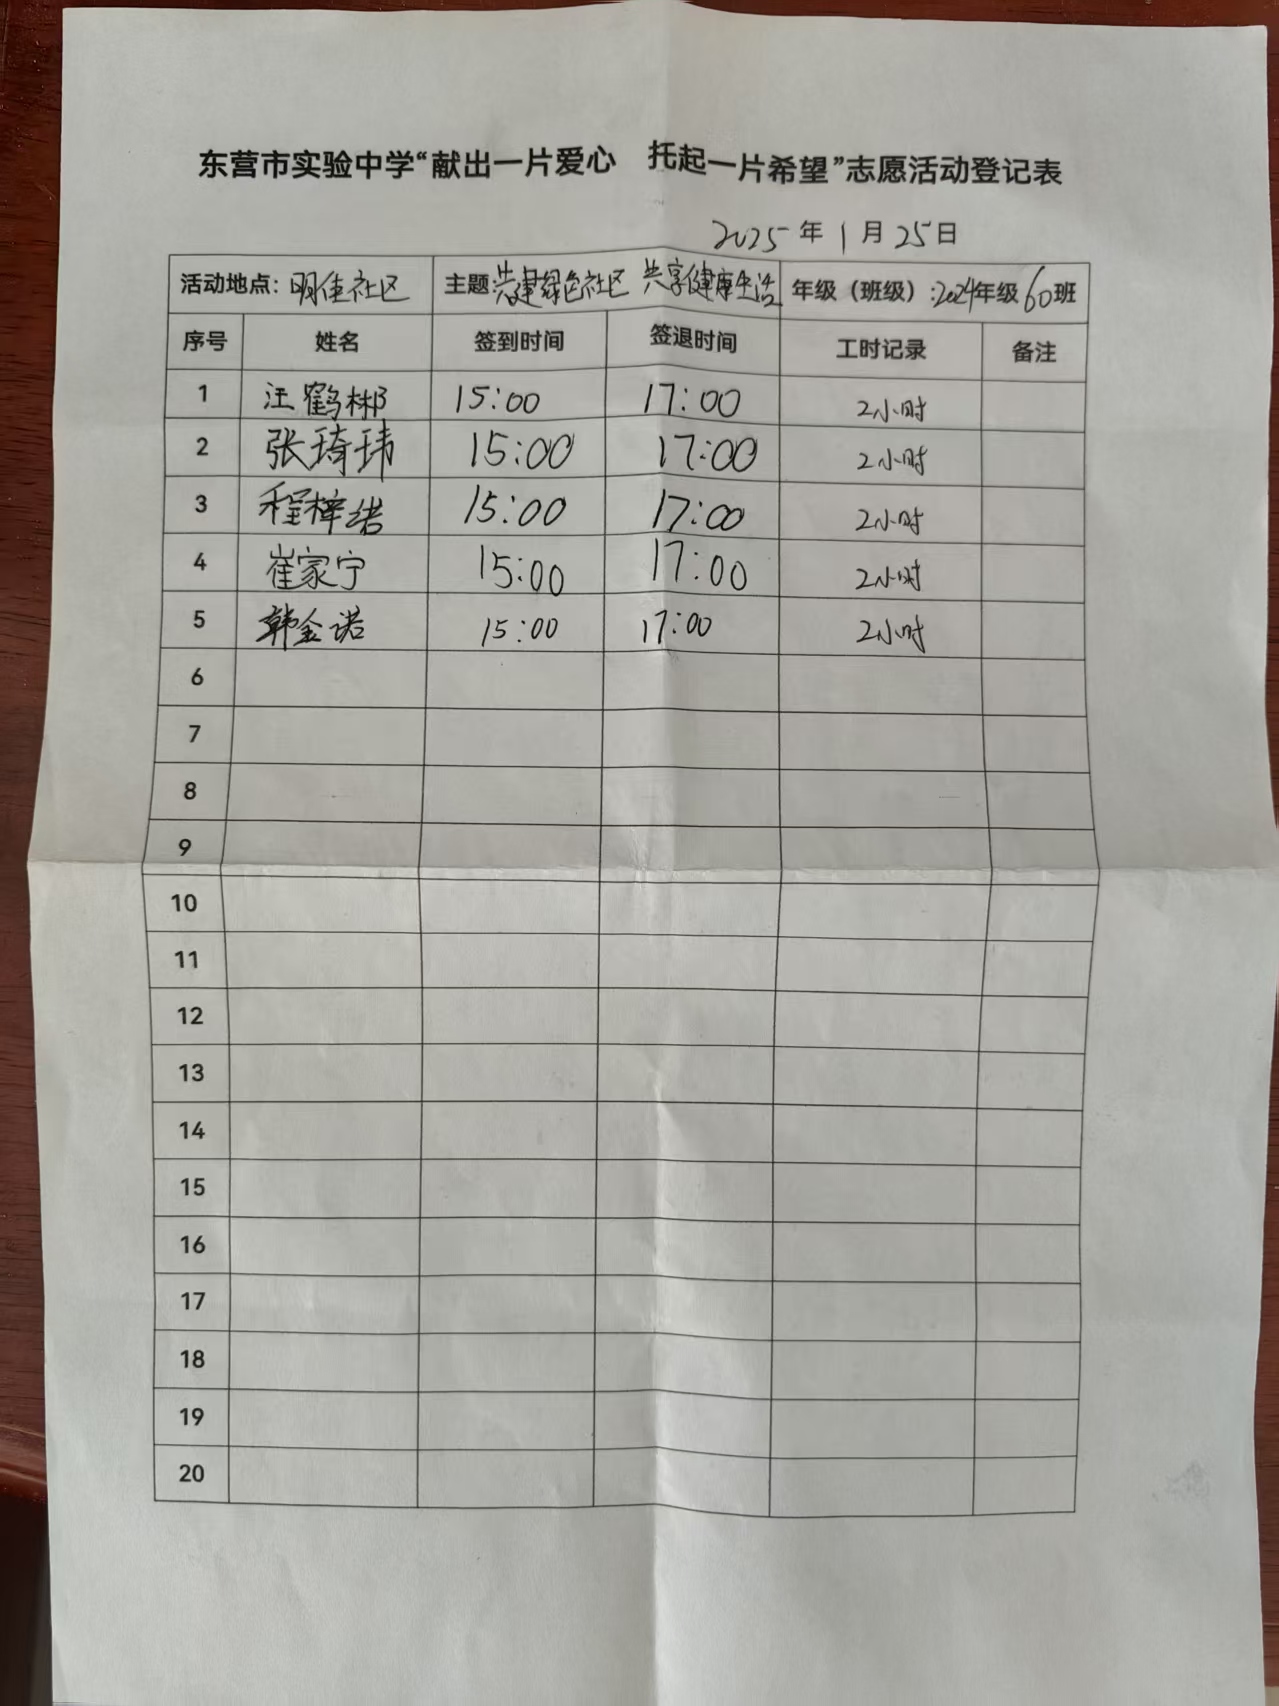 东营市实验中学“献出一片爱心 托起一片希望”志愿活动登记表
2025年1月25日
活动地点：明佳社区 主题共建绿色社区 共享健康生活 年级（班级）:2024年级60班
序号 姓名 签到时间 签退时间 工时记录 备注
1 汪鹤彬 15:00 17:00 2小时
2 张琦玮 15:00 17:00 2小时
3 程梓诺 15:00 17:00 2小时
4 崔家宁 15:00 17:00 2小时
5 韩金诺 15:00 17:00 2小时
6
7
8
9
10
11
12
13
14
15
16
17
18
19
20